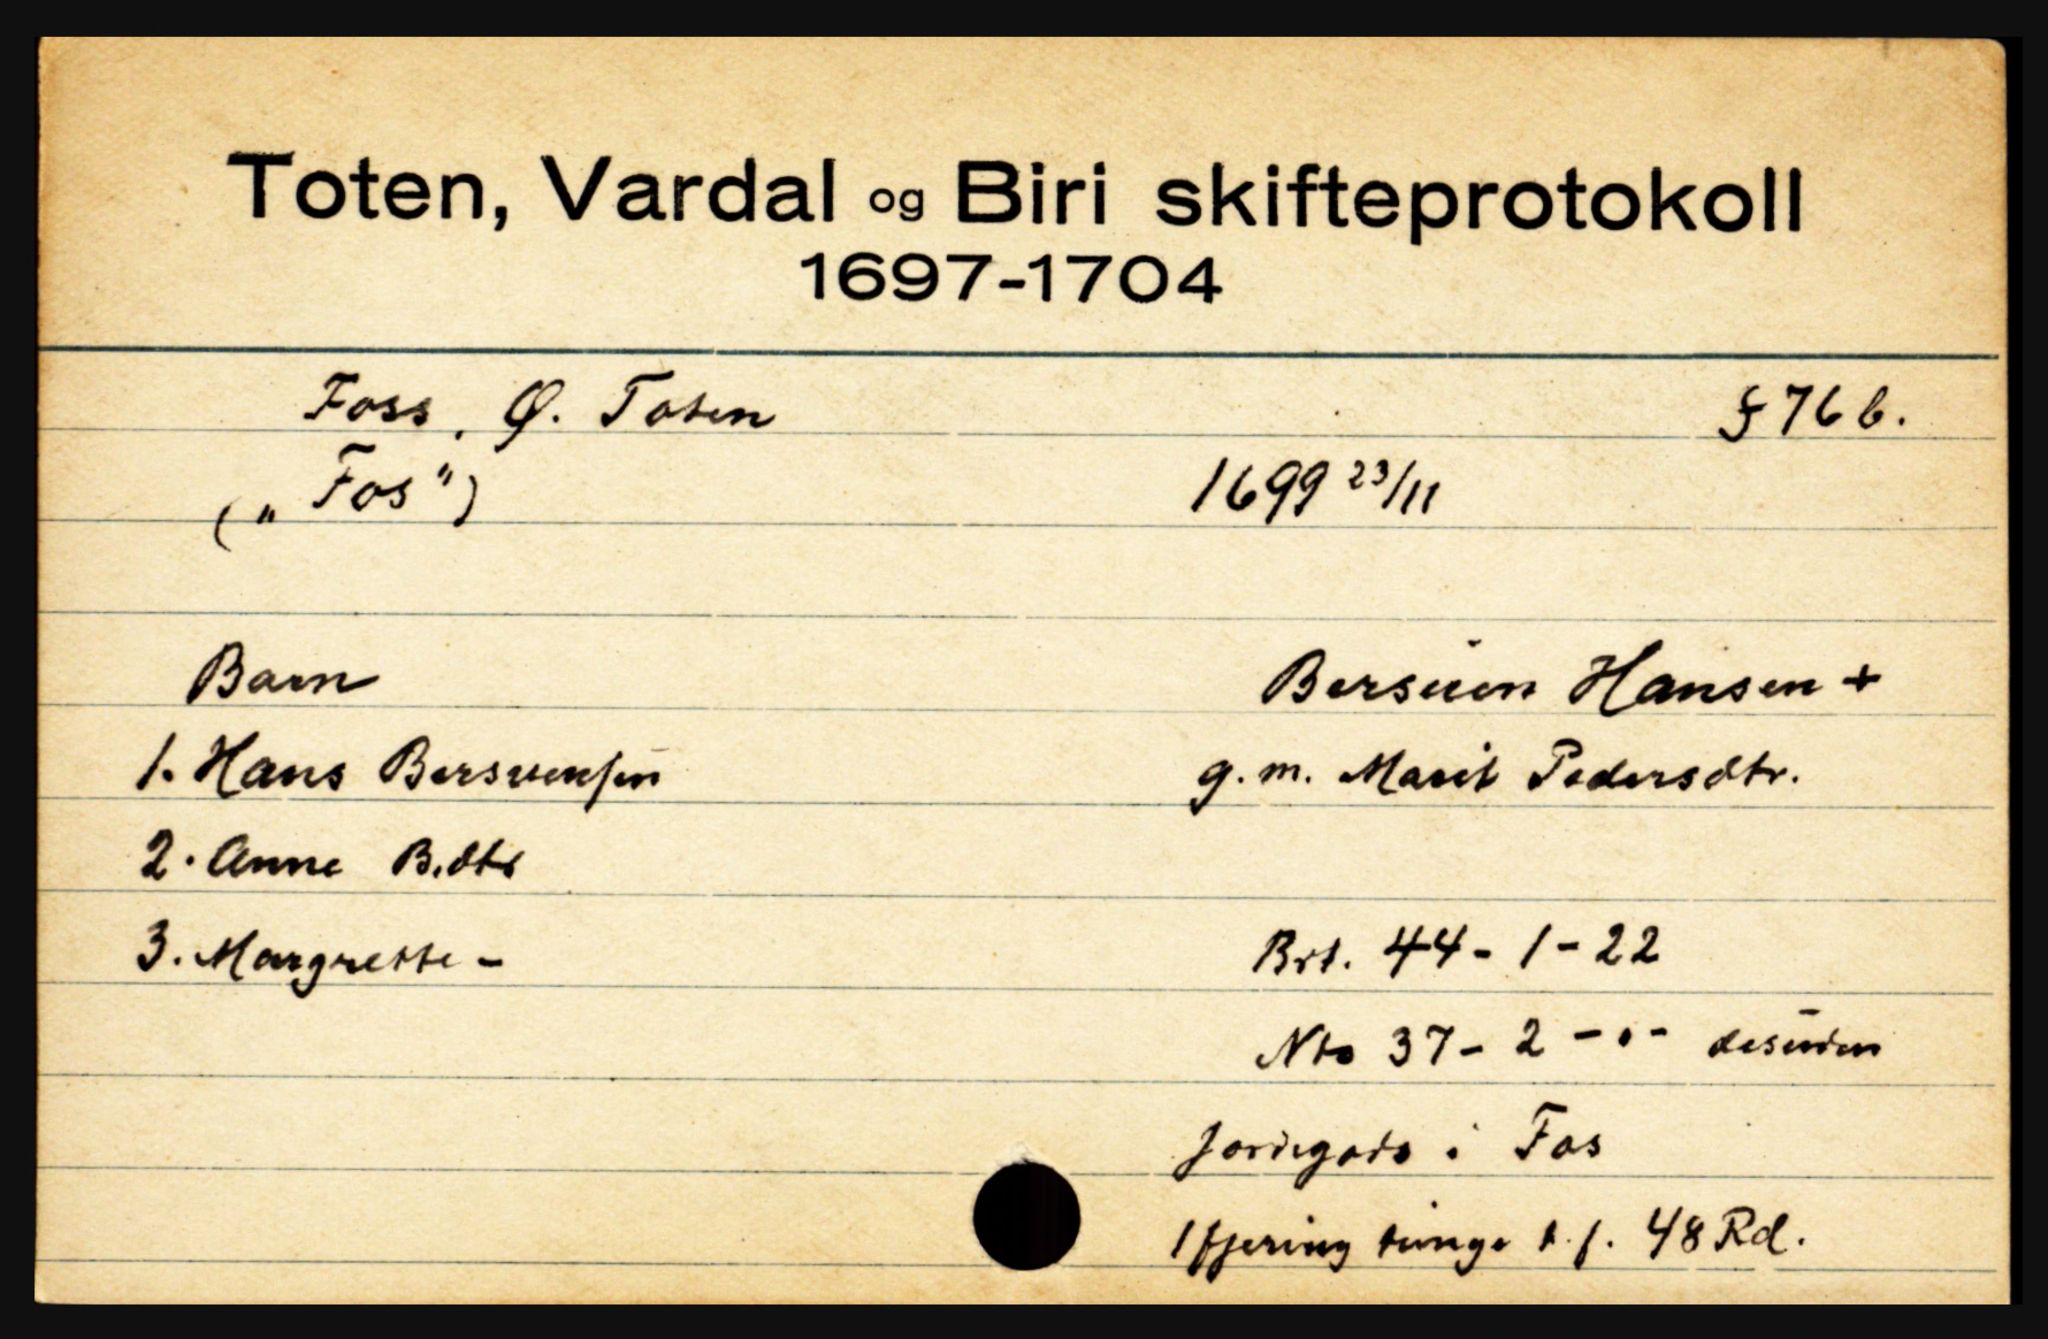 Toten, Vardal og Biri skifteprotokoll
1697-1704
Foss, Ø. Toten § 76 b.
(„Fos") 1699 23/11
Barn Bersuen Hansen +
1. Hans Bersuensen g.m. Marit Pedersdtr.
2. Anne B.dtr
3. Margrette - Brt. 44-1-22
Nto 37-2-"- desuden
jordegods i Fos
1 fjering tunge t.f. 48 Rd.